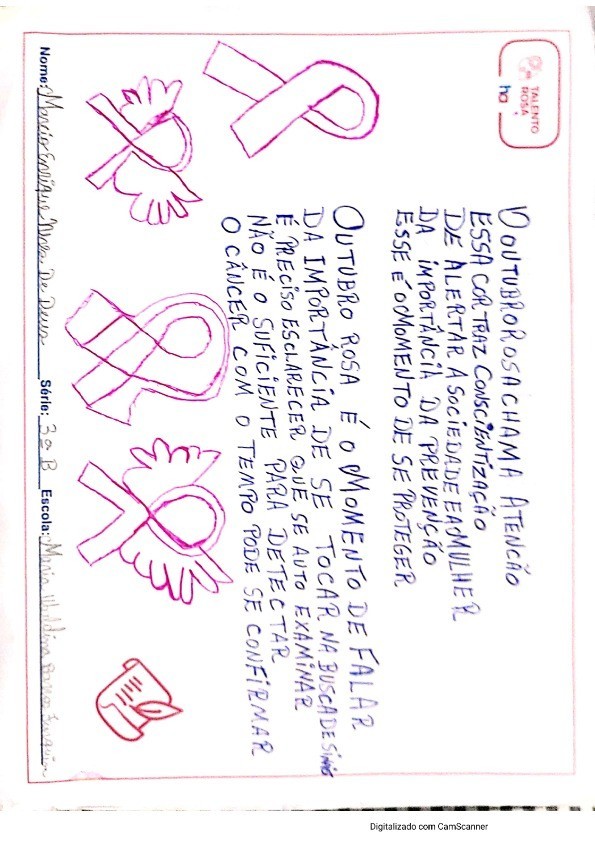 TALENTO
ROSA
ha
O OUTUBRO ROSA CHAMA ATENCÃO
ESSA COR TRAZ CONSCIENTIZAÇÃO
DE ALERTAR A SOCIEDADE E A MULHER
DA IMPORTÂNCIA DA PREVENÇÃO
ESSE É O MOMENTO DE SE PROTEGER
OUTUBRO ROSA É O MOMENTO DE FALAR
DA IMPORTÂNCIA DE SE TOCAR NA BUSCA DE SINAIS
É PRECISO ESCLARECER QUE SE AUTO EXAMINAR
NÃO É O SUFICIENTE PARA DETECTAR
O CÂNCER COM O TEMPO PODE SE CONFIRMAR
Nome: Marcio Enrique De Deus Série: 3º B Escola: Maria
Digitalizado com CamScanner